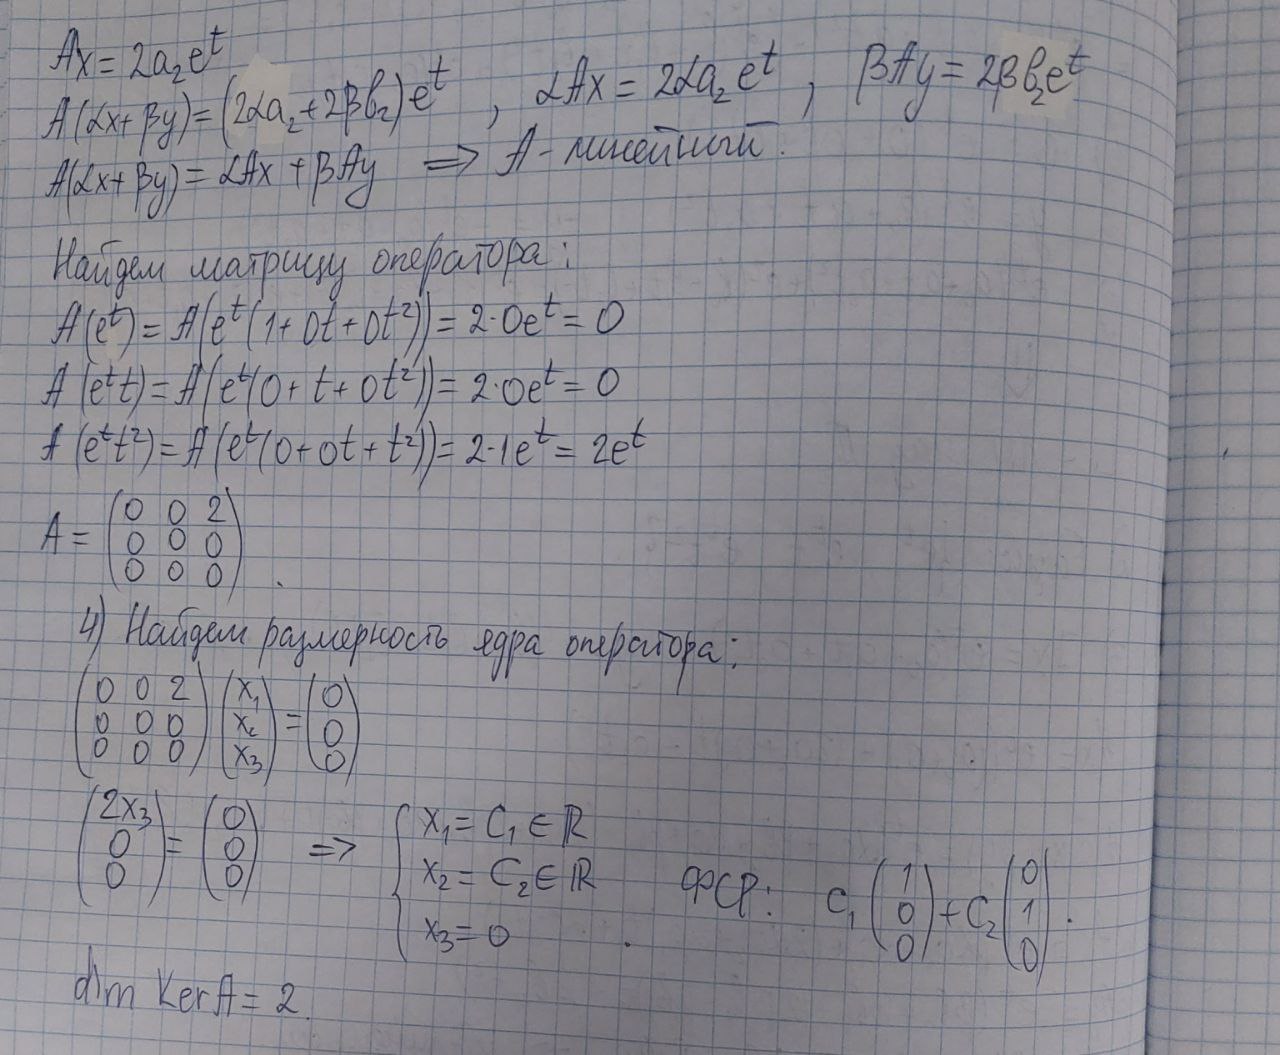 Ax = 2a₂eᵗ
A(αx+βy) = (2αa₂+2βb₂)eᵗ , αAx = 2αa₂eᵗ , βAy = 2βb₂eᵗ
A(αx+βy) = αAx + βAy ⇒ A - линейный.
Найдем матрицу оператора:
A(eᵗ) = A(eᵗ(1+0t+0t²)) = 2·0eᵗ = 0
A(eᵗt) = A(eᵗ(0+t+0t²)) = 2·0eᵗ = 0
A(eᵗt²) = A(eᵗ(0+0t+t²)) = 2·1eᵗ = 2eᵗ
A = (0 0 2
0 0 0
0 0 0).
4) Найдем размерность ядра оператора:
(0 0 2) (x₁) = (0)
(0 0 0) (x₂) (0)
(0 0 0) (x₃) (0)
(2x₃) = (0) ⇒ { x₁ = C₁ ∈ ℝ
(0) (0) x₂ = C₂ ∈ ℝ ФСР: C₁ (1 0 0) + C₂ (0 1 0).
(0) (0) x₃ = 0.
dim Ker A = 2.